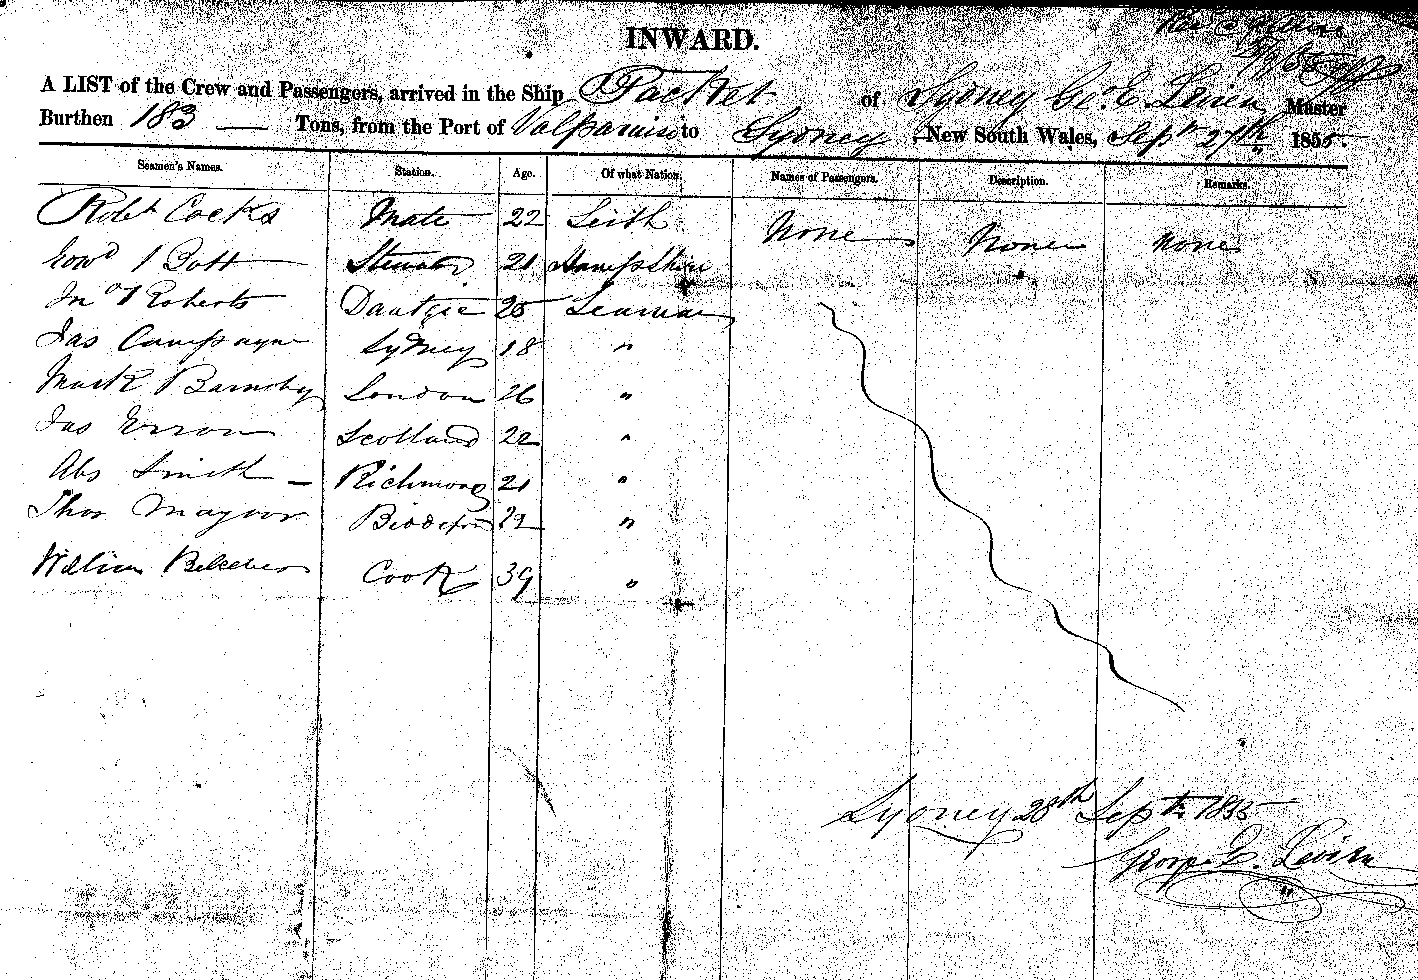 INWARD.
A LIST of the Crew and Passengers, arrived in the Ship Packet of Sydney Geo. E. Levien Master
Burthen 183 — Tons, from the Port of Valparaiso to Sydney, New South Wales, Sepr 27th 1855.
Seamen's Names. Station. Age. Of what Nation. Names of Passengers. Description. Remarks.
Robt Cocks Mate 22 Leith None None None
Edwd J Bott Steward 21 Hampshire
Jno T Roberts Dantzic 25 Seaman
Jas Campayne Sydney 18 "
Mark Barnsby London 26 "
Jas Errow Scotland 22 "
Abs Smith — Richmond 21 "
Thos Maynor Biddeford 22 "
William Belcher Cook 39 "
Sydney 28th Septr 1855
George E. Levien